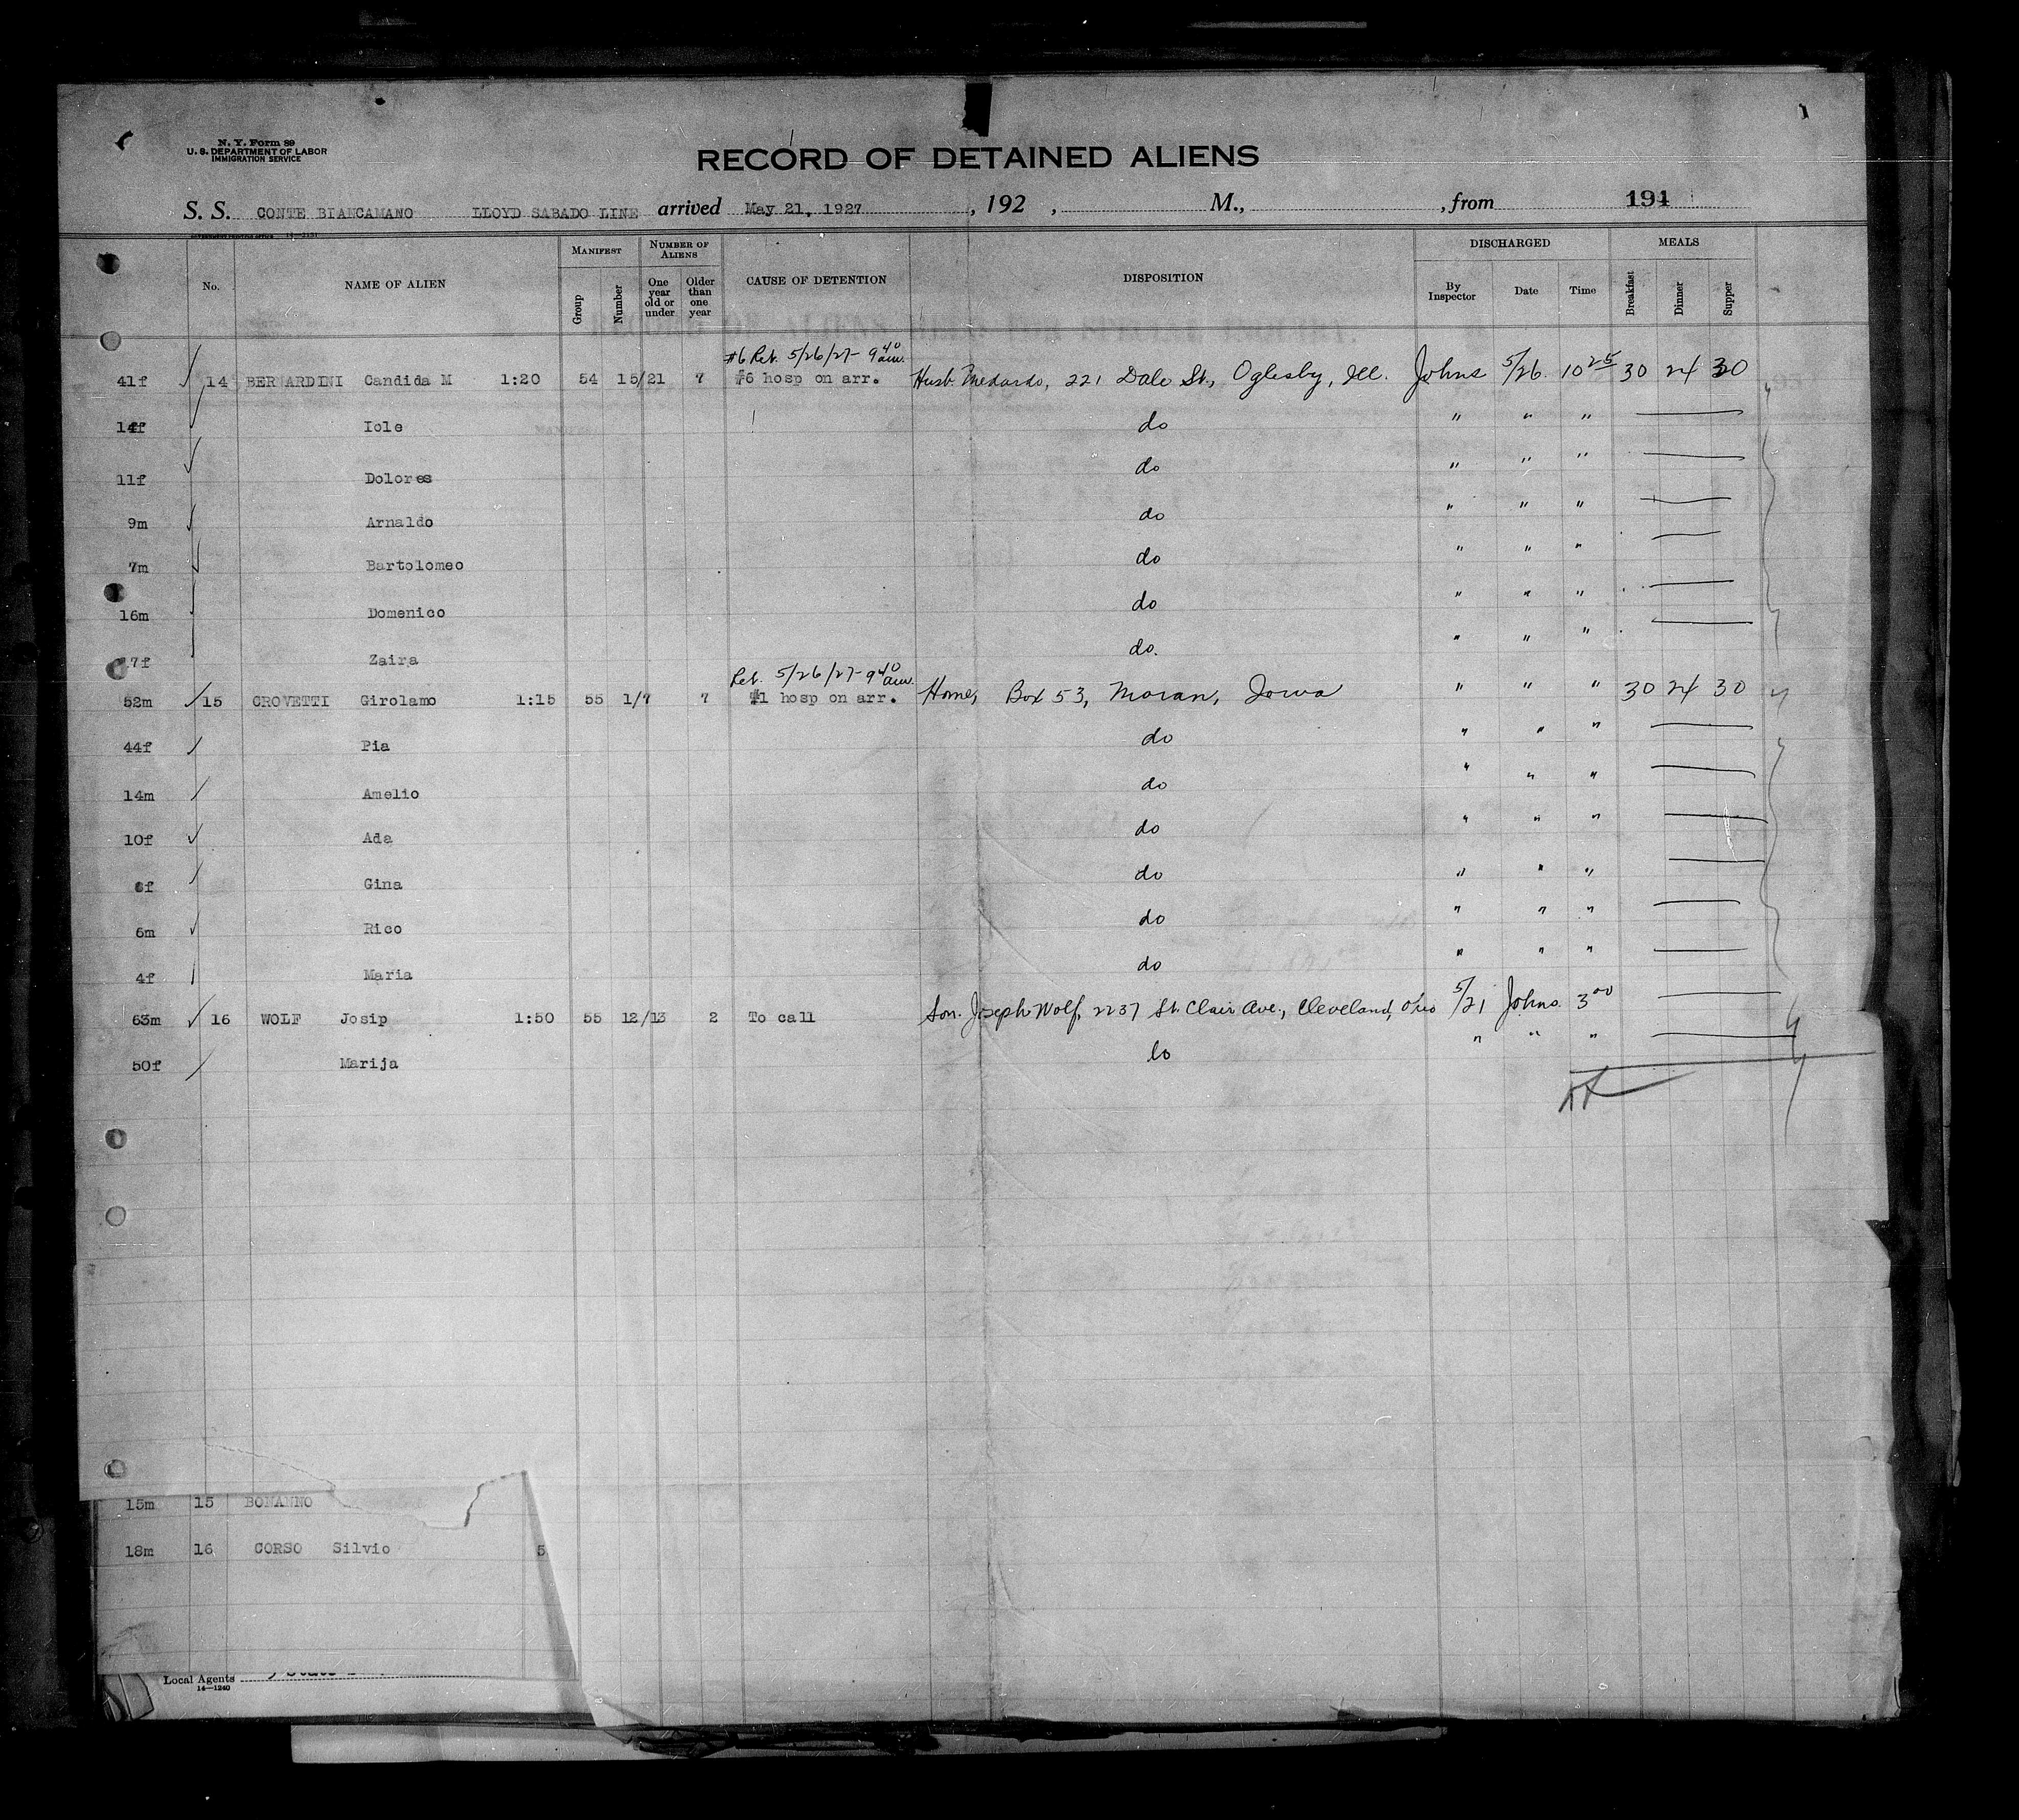 N. Y. Form 89
U. S. DEPARTMENT OF LABOR
IMMIGRATION SERVICE
RECORD OF DETAINED ALIENS
S. S. CONTE BIANCAMANO LLOYD SABADO LINE arrived May 21, 1927 , 192 , M., , from 191
No. NAME OF ALIEN MANIFEST Group Number NUMBER OF ALIENS One year old or under Older than one year CAUSE OF DETENTION DISPOSITION DISCHARGED By Inspector Date Time MEALS Breakfast Dinner Supper
#6 Ret. 5/26/27- 9 40 am.
41f 14 BERNARDINI Candida M 1:20 54 15/21 7 #6 hosp on arr. Husb. Medardo, 221 Dale St., Oglesby, Ill. Johns 5/26 10 25 30 24 30
14f Iole do " " "
11f Dolores do " " "
9m Arnaldo do " " "
7m Bartolomeo do " " "
16m Domenico do " " "
17f Zaira do. " " "
Ret. 5/26/27- 9 40 am.
52m 15 CROVETTI Girolamo 1:15 55 1/7 7 #1 hosp on arr. Home, Box 53, Moran, Iowa " " " 30 24 30
44f Pia do " " "
14m Amelio do " " "
10f Ada do " " "
Gina do " " "
6m Rico do " " "
4f Maria do " " "
63m 16 WOLF Josip 1:50 55 12/13 2 To call Son. Joseph Wolf, 2237 St. Clair Ave., Cleveland, Ohio 5/21 Johns 3 00
50f Marija do " " "
15m 15 BONANNO
18m 16 CORSO Silvio 5
Local Agents
14—1240